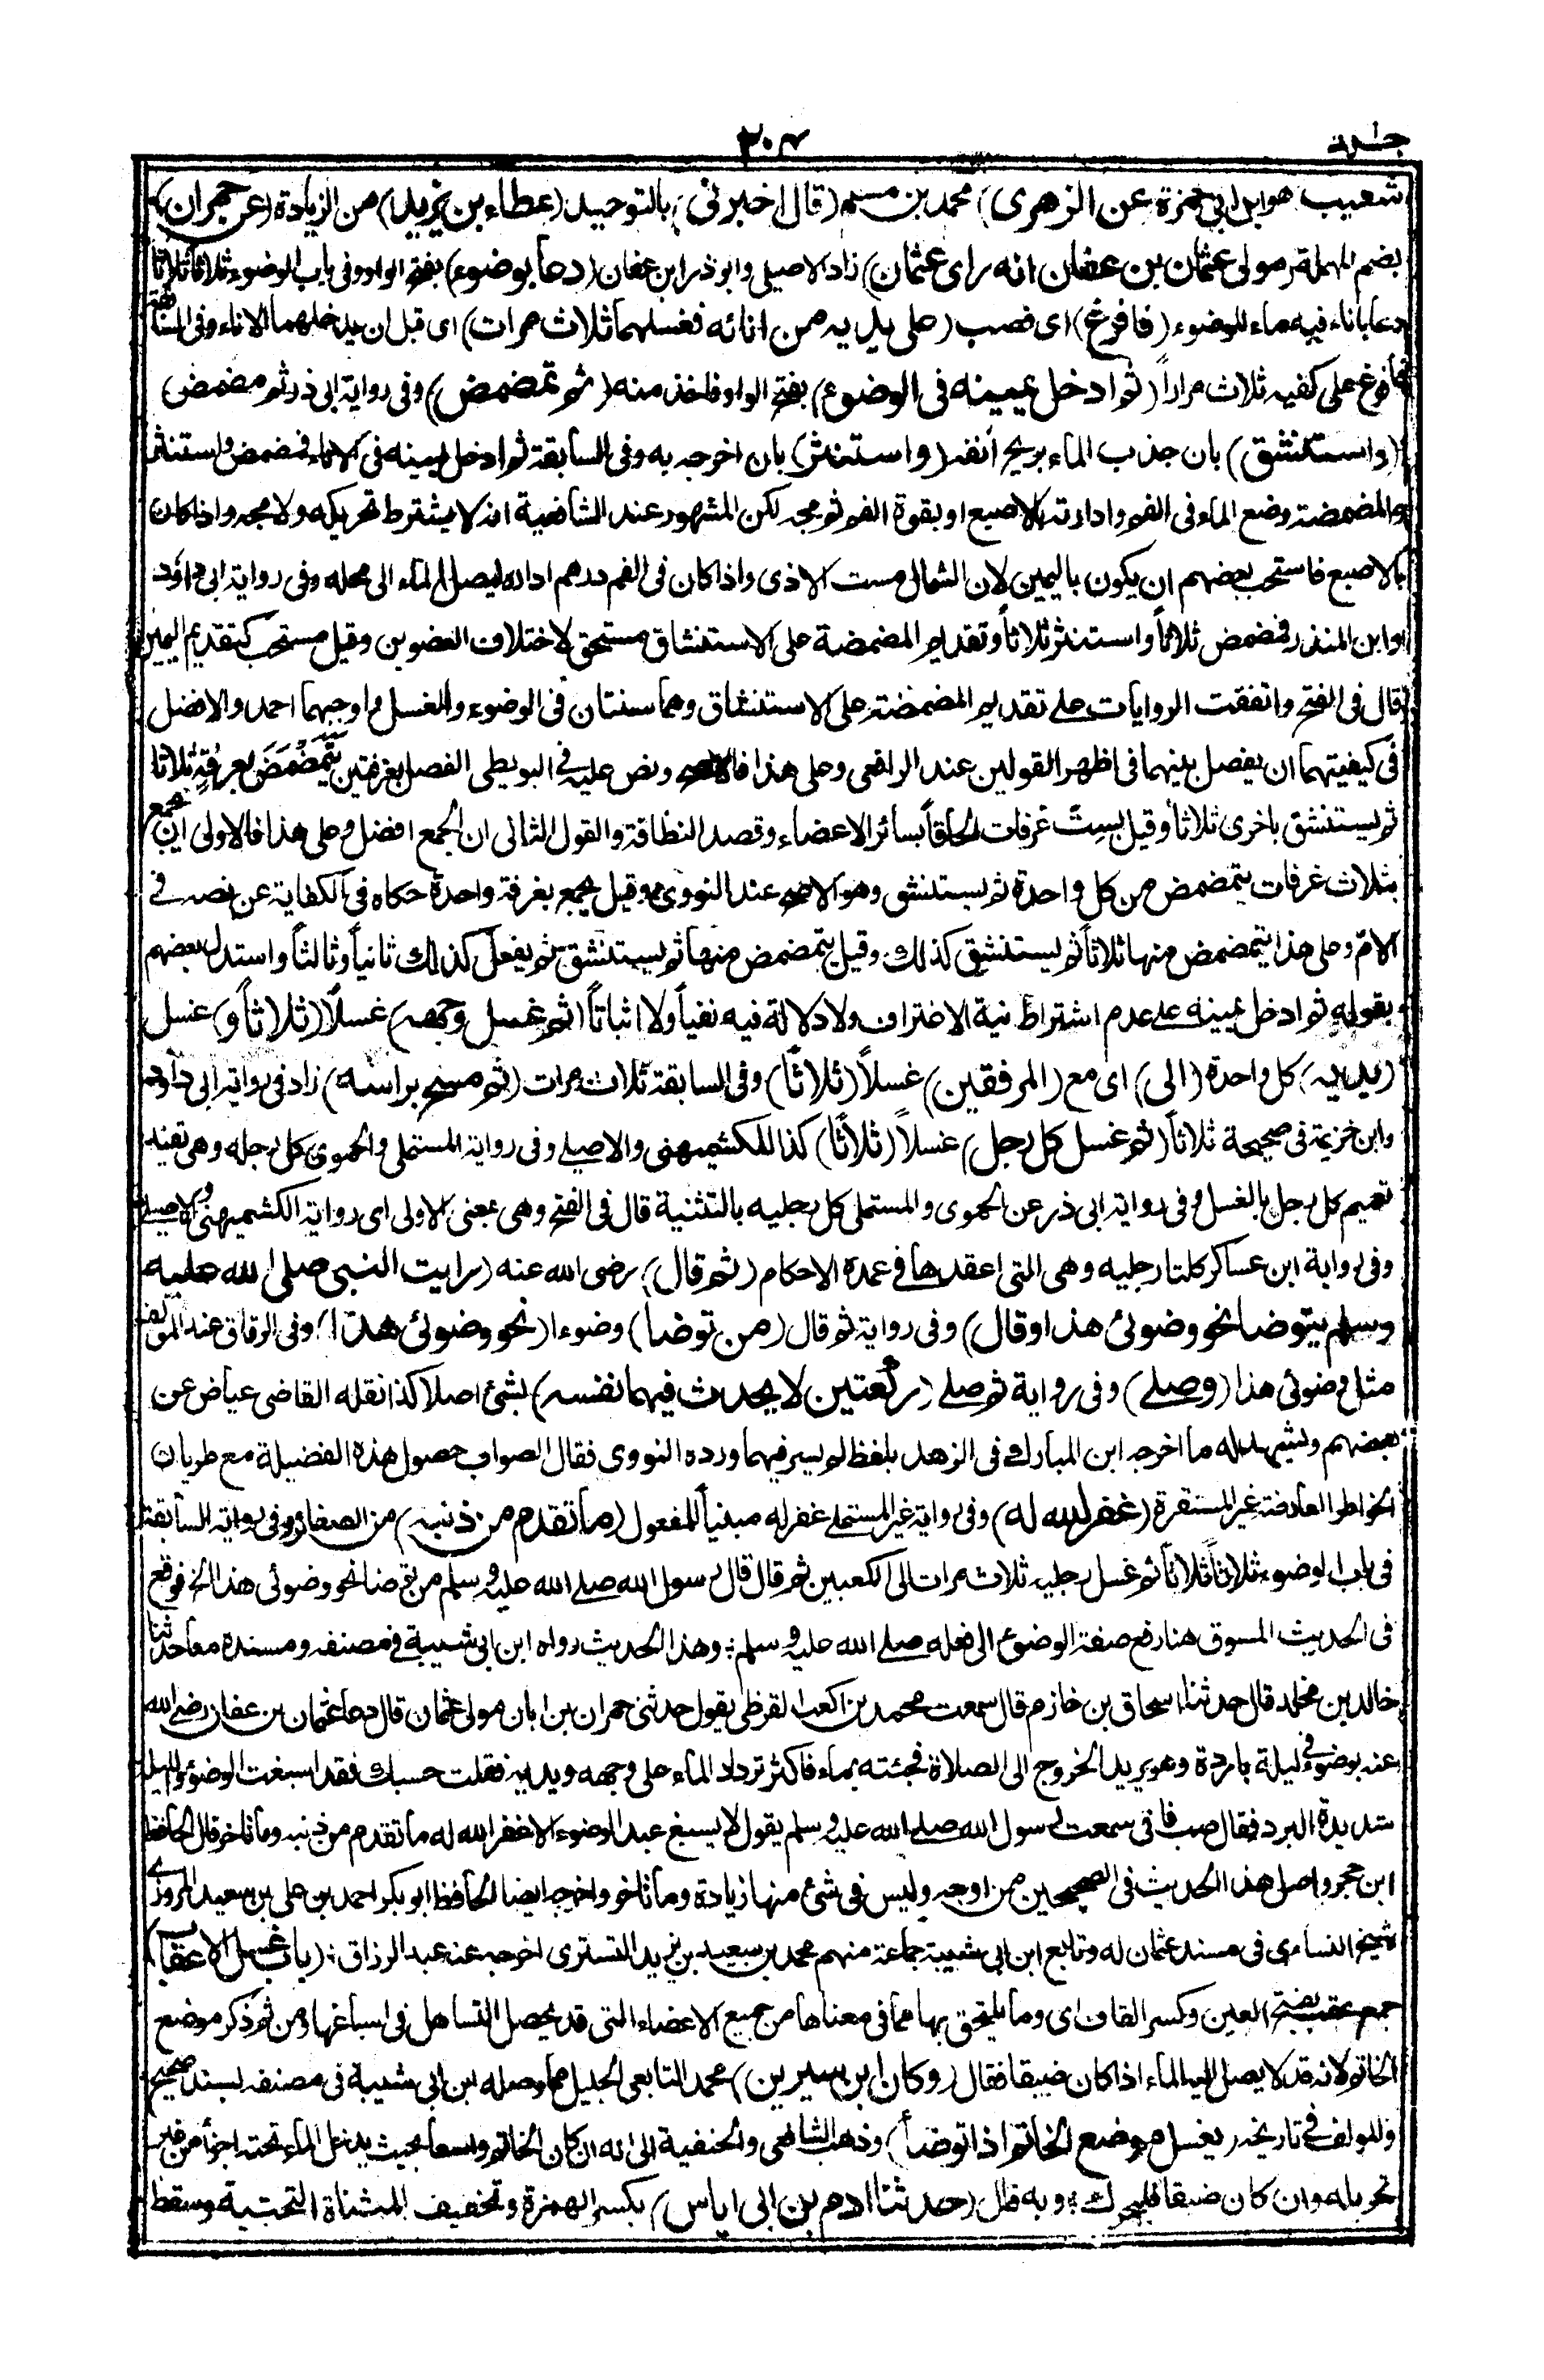 جلد
٣٠٤
شعيب هو ابن ابي حمزة (عن الزهري) محمد بن مسلم (قال اخبرني) بالتوحيد (عطاء بن يزيد) من الزيادة (عن حمران)
بضم المهملة (مولى عثمان بن عفان انه راى عثمان) زاد الاصيلي وابو ذر ابن عفان (دعا بوضوء) بفتح الواو وفي باب الوضوء ثلاثا ثلاثا
دعا باناء فيه ماء للوضوء (فافرغ) اى فصب (على يديه من انائه فغسلهما ثلاث مرات) اى قبل ان يدخلهما الاناء وفي السابقة
فافرغ على كفيه ثلاث مراراً (ثم ادخل يمينه فى الوضوء) بفتح الواو فاخذ منه (ثم تمضمض) وفى رواية ابى ذر ثم مضمض
(واستنشق) بان جذب الماء بريح انفه (واستنثر) بان اخرجه به وفى السابقة ثم ادخل يمينه فى الاناء فمضمض واستنثر
والمضمضة وضع الماء فى الفم وادارته بالاصبع او بقوة الفم ثم مجه لكن المشهور عند الشافعية انه لا يشترط تحريكه ولا مجه واذا كان
بالاصبع فاستحب بعضهم ان يكون باليمين لان الشمال مست الاذى واذا كان فى الفم درهم اداره ليصل الماء الى محله وفى رواية ابى داؤد
وابن المنذر فمضمض ثلاثاً واستنثر ثلاثاً وتقديم المضمضة على الاستنشاق مستحق لاختلاف العضوين وقيل مستحب كتقديم اليمين
قال فى الفتح واتفقت الروايات على تقديم المضمضة على الاستنشاق وهما سنتان فى الوضوء والغسل واوجبهما احمد والافضل
فى كيفيتهما ان يفصل بينهما فى اظهر القولين عند الرافعى وعلى هذا فالاصح ونص عليه فى البويطى الفصل بغرفتين يتمضمض بغرفة ثلاثا
ثم يستنشق باخرى ثلاثاً وقيل بست غرفات الحاقاً بسائر الاعضاء وقصد النظافة والقول الثانى ان الجمع افضل وعلى هذا فالاولى ان يجمع
بثلاث غرفات يتمضمض من كل واحدة ثم يستنشق وهو الاصح عند النووى وقيل يجمع بغرفة واحدة حكاه فى الكفاية عن نصه فى
الام وعلى هذا يتمضمض منها ثلاثاً ثم يستنشق كذلك وقيل يتمضمض منها ثم يستنشق ثم يفعل كذلك ثانياً وثالثاً واستدل بعضهم
بقوله ثم ادخل يمينه على عدم اشتراط نية الاغتراف ولا دلالة فيه نفياً ولا اثباتاً (ثم غسل وجهه) غسلاً (ثلاثاً و) غسل
(يديه) كل واحدة (الى) اى مع (المرفقين) غسلاً (ثلاثاً) وفى السابقة ثلاث مرات (ثم مسح براسه) زاد فى رواية ابى داود
وابن خزيمة فى صحيحه ثلاثاً (ثم غسل كل رجل) غسلاً (ثلاثاً) كذا للكشميهنى والاصيلى وفى رواية المستملى والحموى كل رجله وهى تفيد
تعميم كل رجل بالغسل وفى رواية ابى ذر عن الحموى والمستملى كل رجليه بالتثنية قال فى الفتح وهى بمعنى الاولى اى رواية الكشميهنى والاصيلى
وفى رواية ابن عساكر كلتا رجليه وهى التى اعتمدها فى عمدة الاحكام (ثم قال) رضى الله عنه (رايت النبى صلى الله عليه
وسلم يتوضا نحو وضوئى هذا وقال) وفى رواية ثم قال (من توضا) وضوءا (نحو وضوئى هذا) وفى الرقاق عند المؤلف
مثل وضوئى هذا (وصلى) وفى رواية ثم صلى (ركعتين لا يحدث فيهما نفسه) بشئ اصلا كذا نقله القاضى عياض عن
بعضهم ويشهد له ما اخرجه ابن المبارك فى الزهد بلفظ لم يسر فيهما ورده النووى فقال الصواب حصول هذه الفضيلة مع طريان
الخواطر العارضة غير المستقرة (غفر الله له) وفى رواية غير المستملى غفر له مبنياً للمفعول (ما تقدم من ذنبه) من الصغائر وفى رواية السابقة
فى باب الوضوء ثلاثاً ثلاثاً ثم غسل رجليه ثلاث مرات الى الكعبين ثم قال قال رسول الله صلى الله عليه وسلم من توضا نحو وضوئى هذا الخ فوقع
فى الحديث المسوق هنا رفع صفة الوضوء الى فعله صلى الله عليه وسلم؛ وهذا الحديث رواه ابن ابى شيبة فى مصنفه ومسنده معا حدثنا
خالد بن مخلد قال حدثنا اسحاق بن حازم قال سمعت محمد بن كعب القرظى يقول حدثنى حمران بن ابان مولى عثمان قال دعا عثمان بن عفان رضى الله
عنه بوضوء فى ليلة باردة وهو يريد الخروج الى الصلاة فجئته بماء فاكثر ترداد الماء على وجهه ويديه فقلت حسبك فقد اسبغت الوضوء والليلة
شديدة البرد فقال صب فانى سمعت رسول الله صلى الله عليه وسلم يقول لا يسبغ عبد الوضوء الا غفر الله له ما تقدم من ذنبه وما تاخر قال الحافظ
ابن حجر واصل هذا الحديث فى الصحيحين من اوجه وليس فى شئ منها زيادة وما تاخر واخرجه ايضا الحافظ ابو بكر احمد بن على بن سعيد المروزى
شيخ النسائى فى مسند عثمان له وتابع ابن ابى شيبة جماعة منهم محمد بن سعيد بن يزيد التسترى اخرجه عنه عبد الرزاق؛ (باب غسل الاعقاب)
جمع عقب بفتح العين وكسر القاف اى وما يلتحق بها مما فى معناها من جميع الاعضاء التى قد يحصل التساهل فى اسباغها ومن ثم ذكر موضع
الخاتم لانه قد لا يصل اليه الماء اذا كان ضيقا فقال (وكان ابن سيرين) محمد التابعى الجليل مما وصله ابن ابى شيبة فى مصنفه بسند صحيح
وللمؤلف فى تاريخه (يغسل موضع الخاتم اذا توضأ) وذهب الشافعى والحنفية الى انه ان كان الخاتم واسعا بحيث يدخل الماء تحته اجزأ من غير
تحريكه وان كان ضيقا فليحرك؛ وبه قال (حدثنا ادم بن ابى اياس) بكسر الهمزة وتخفيف المثناة التحتية وسقط